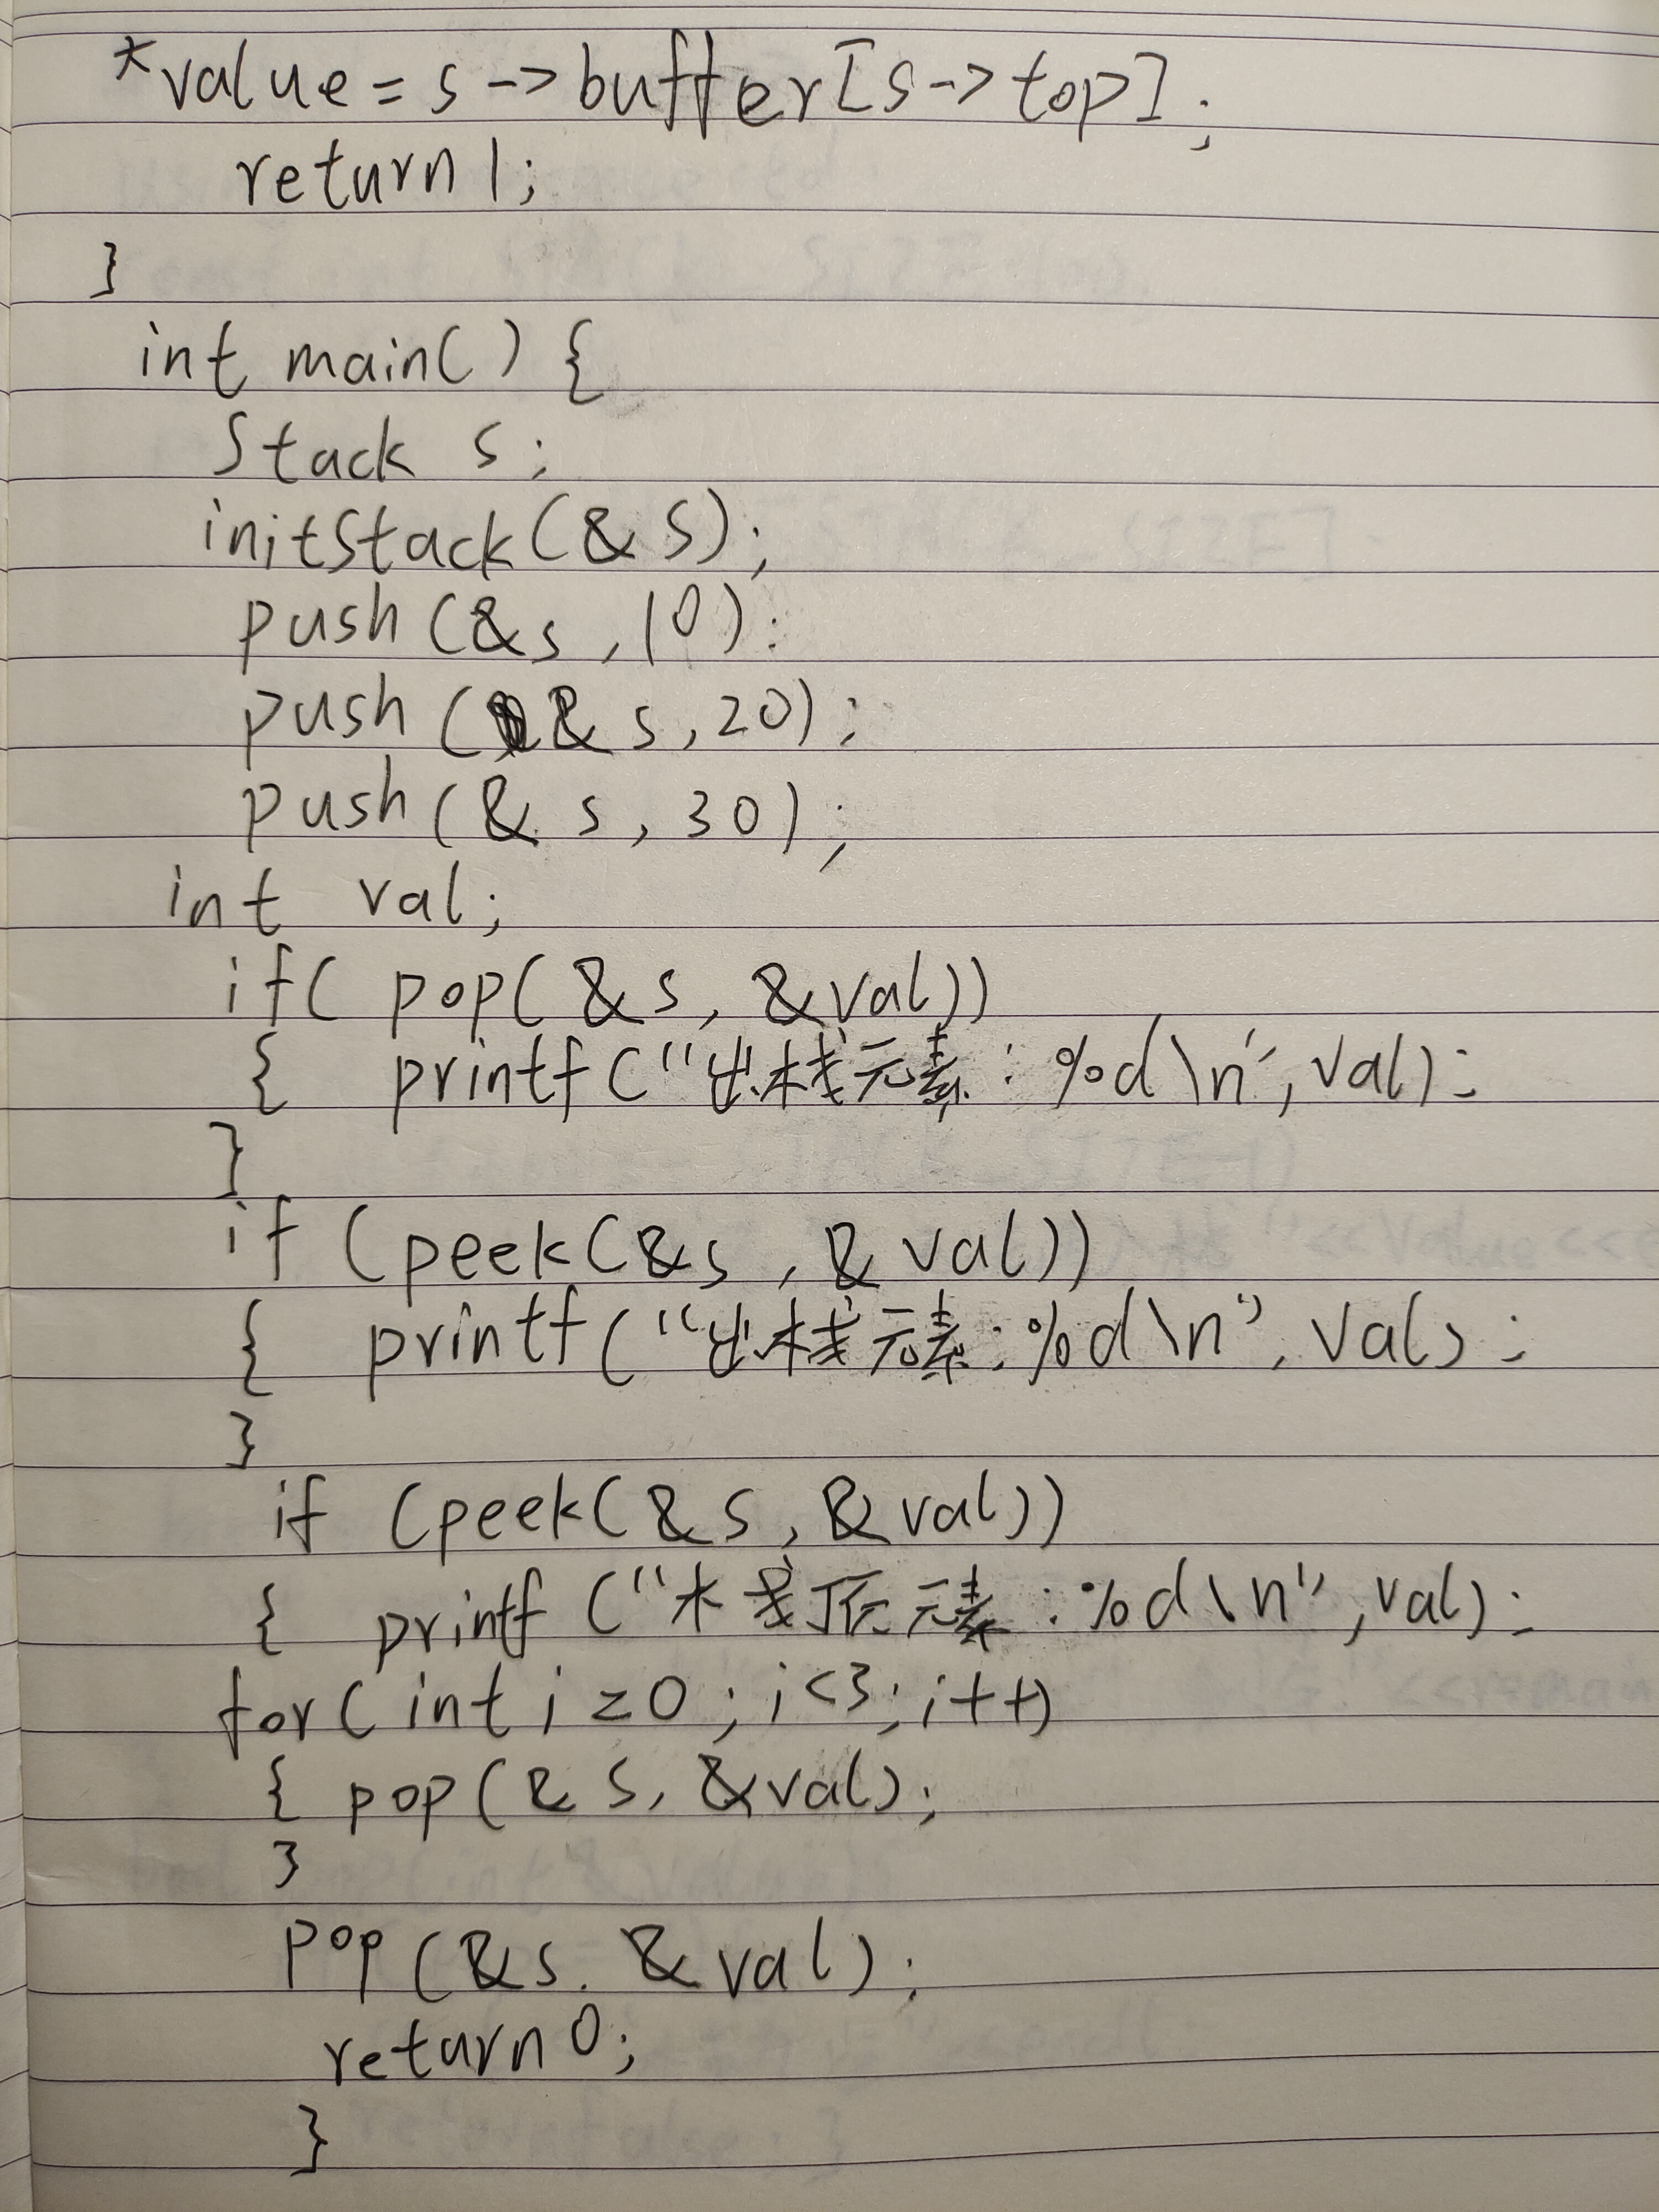 *value = s->buffer[s->top];
return 1;
}
int main() {
Stack s;
initStack(&s);
push(&s,10);
push(&s,20);
push(&s,30);
int val;
if( pop(&s, &val))
{ printf("出栈元素:%d\n", val);
}
if (peek(&s, &val))
{ printf("出栈元素:%d\n", val);
}
if (peek(&s, &val))
{ printf("栈顶元素:%d\n", val);
for( int i=0; i<3; i++)
{ pop(&s, &val);
}
pop(&s, &val);
return 0;
}